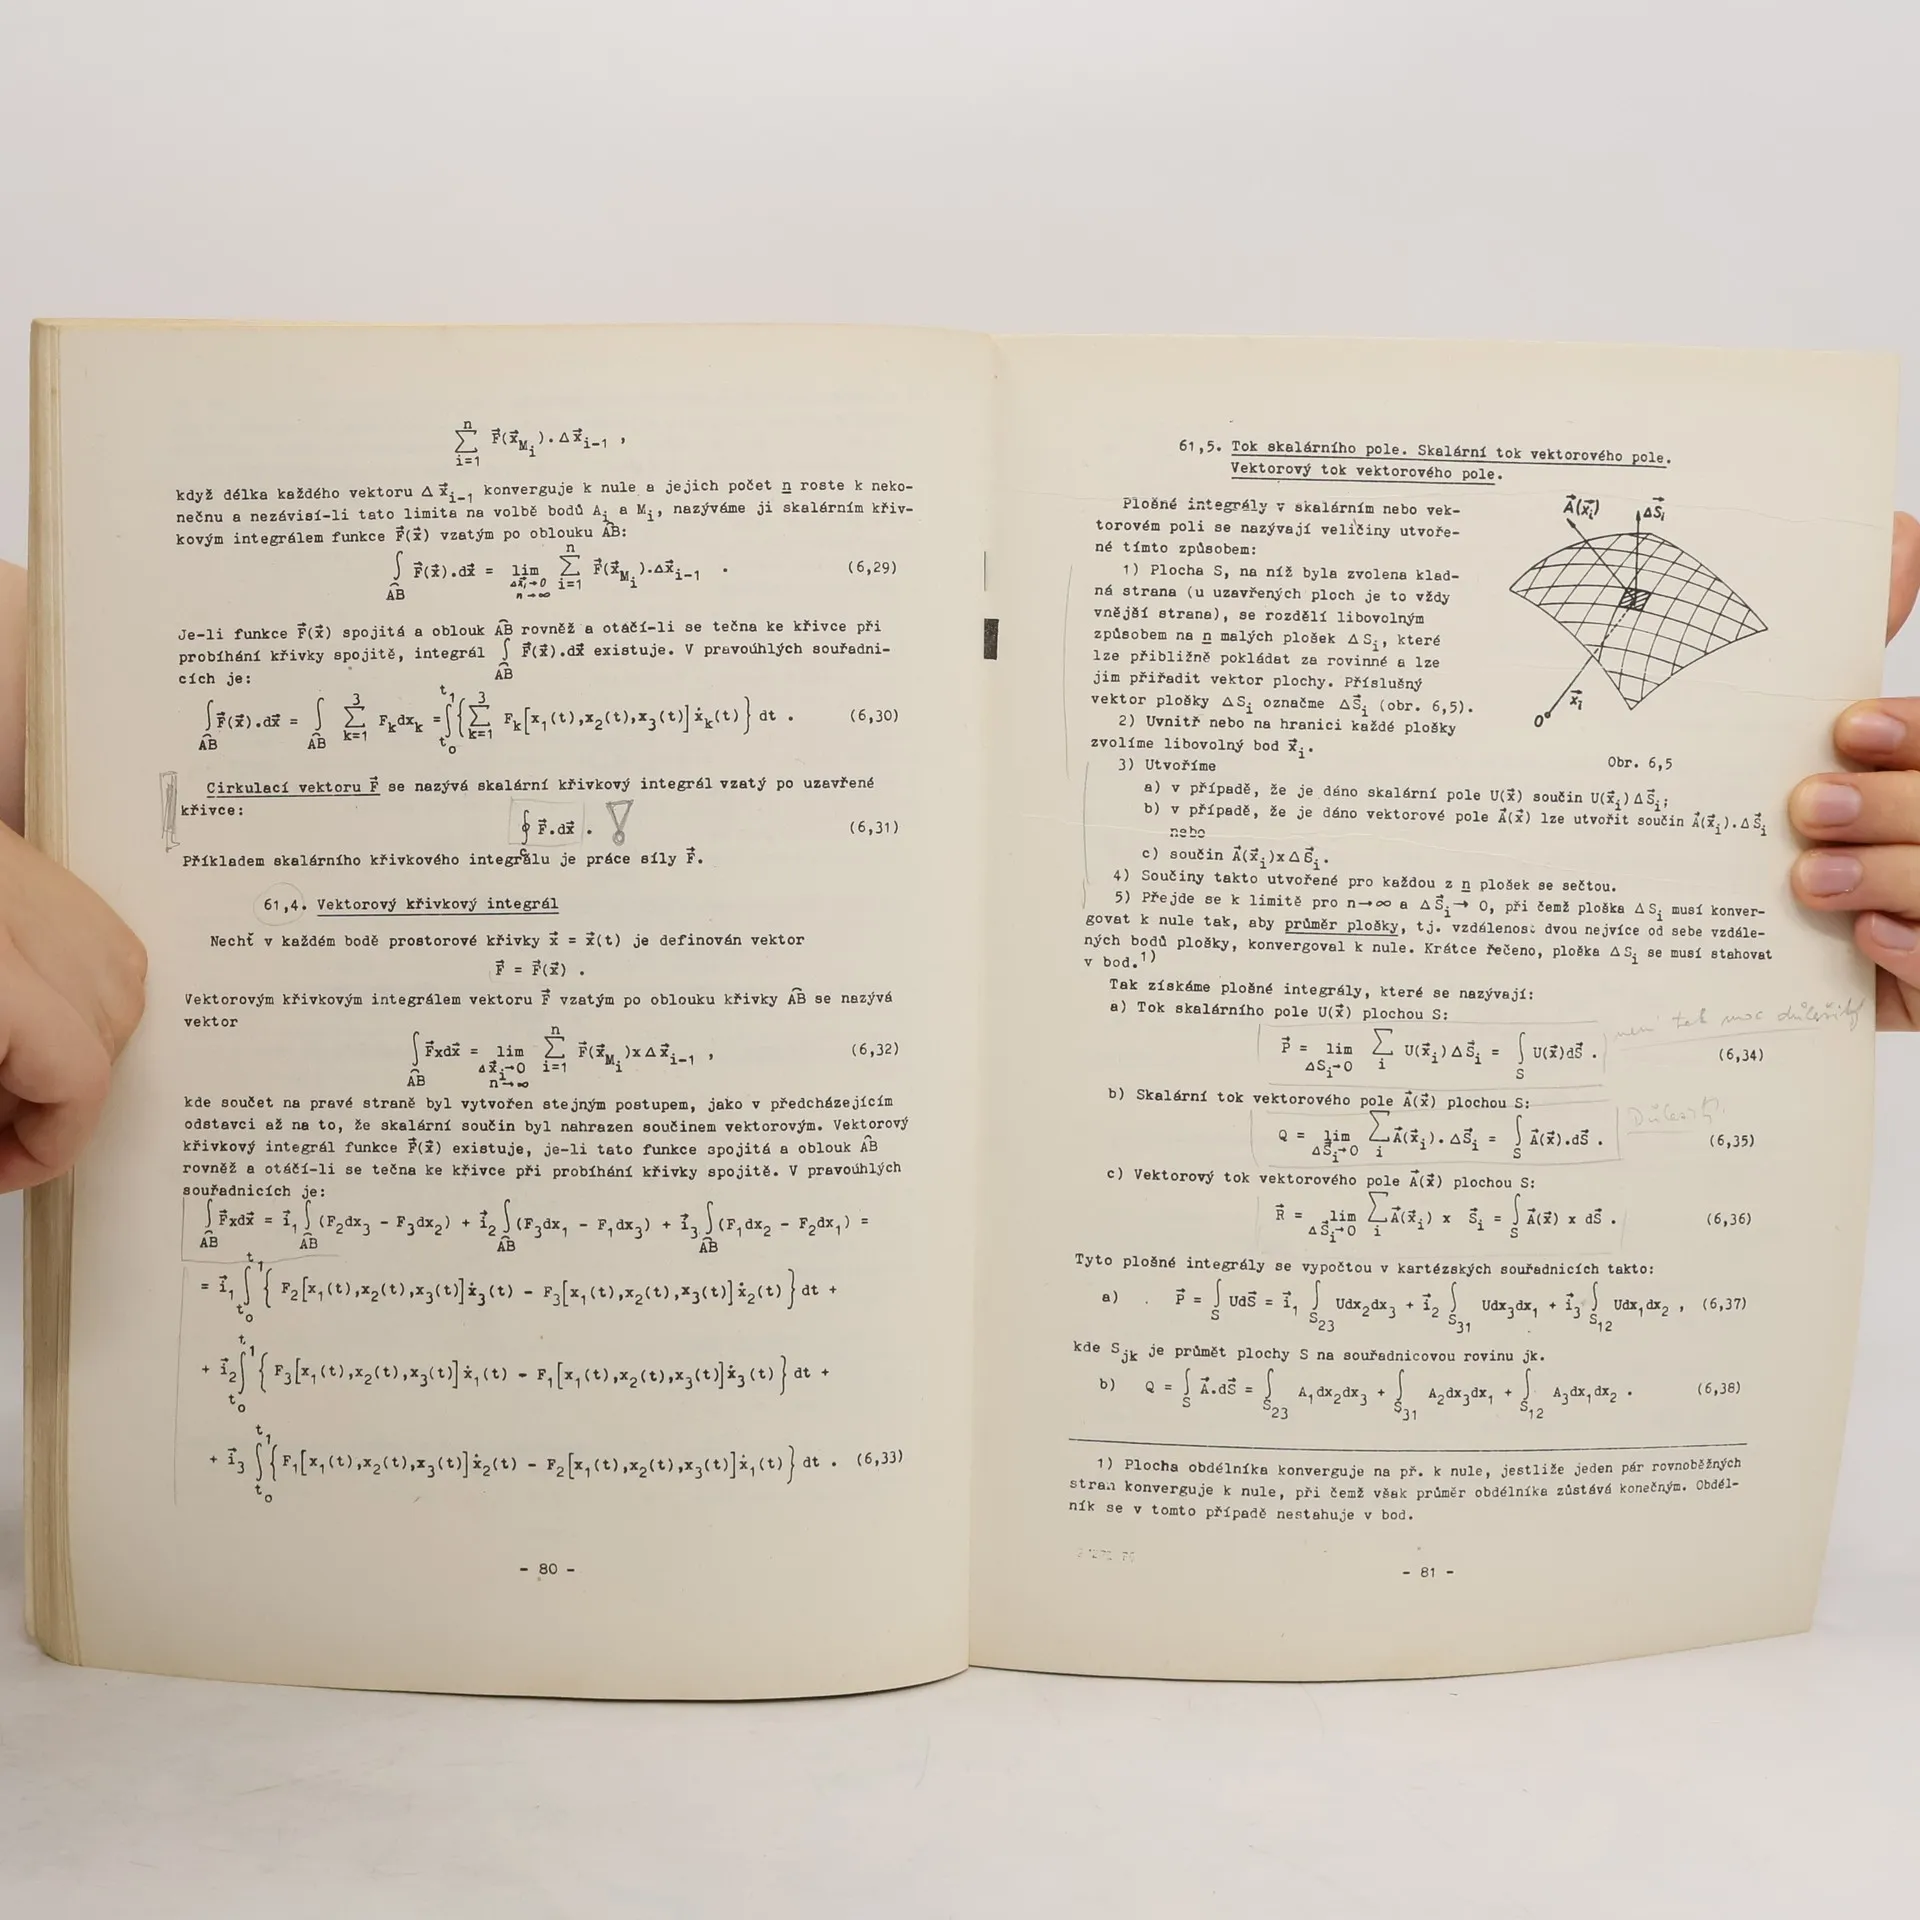 n
∑ F⃗(x⃗Mᵢ).Δx⃗i-1 ,
i=1
když délka každého vektoru Δ x⃗i-1 konverguje k nule a jejich počet n roste k neko-
nečnu a nezávisí-li tato limita na volbě bodů Ai a Mi, nazýváme ji skalárním křiv-
kovým integrálem funkce F⃗(x⃗) vzatým po oblouku AB:
∫AB F⃗(x⃗).dx⃗ = lim Δx⃗i→0 n→∞ ∑ i=1 n F⃗(x⃗Mᵢ).Δx⃗i-1 . (6,29)
Je-li funkce F⃗(x⃗) spojitá a oblouk AB rovněž a otáčí-li se tečna ke křivce při
probíhání křivky spojitě, integrál ∫AB F⃗(x⃗).dx⃗ existuje. V pravoúhlých souřadni-
cích je:
∫AB F⃗(x⃗).dx⃗ = ∫AB ∑ k=1 3 Fkdxk = ∫ t0 t1 {∑ k=1 3 Fk[x1(t),x2(t),x3(t)]ẋk(t)} dt . (6,30)
Cirkulací vektoru F⃗ se nazývá skalární křivkový integrál vzatý po uzavřené
křivce:
∮c F⃗.dx⃗ . ! (6,31)
Příkladem skalárního křivkového integrálu je práce síly F⃗.
61,4. Vektorový křivkový integrál
Nechť v každém bodě prostorové křivky x⃗ = x⃗(t) je definován vektor
F⃗ = F⃗(x⃗) .
Vektorovým křivkovým integrálem vektoru F⃗ vzatým po oblouku křivky AB se nazývá
vektor
∫AB F⃗xdx⃗ = lim Δx⃗i→0 n→∞ ∑ i=1 n F⃗(x⃗Mᵢ)xΔx⃗i-1 , (6,32)
kde součet na pravé straně byl vytvořen stejným postupem, jako v předcházejícím
odstavci až na to, že skalární součin byl nahrazen součinem vektorovým. Vektorový
křivkový integrál funkce F⃗(x⃗) existuje, je-li tato funkce spojitá a oblouk AB
rovněž a otáčí-li se tečna ke křivce při probíhání křivky spojitě. V pravoúhlých
souřadnicích je:
∫AB F⃗xdx⃗ = i⃗1∫AB(F2dx3 - F3dx2) + i⃗2∫AB(F3dx1 - F1dx3) + i⃗3∫AB(F1dx2 - F2dx1) =
= i⃗1 ∫ t0 t1 { F2[x1(t),x2(t),x3(t)]ẋ3(t) - F3[x1(t),x2(t),x3(t)]ẋ2(t)} dt +
+ i⃗2 ∫ t0 t1 { F3[x1(t),x2(t),x3(t)]ẋ1(t) - F1[x1(t),x2(t),x3(t)]ẋ3(t)} dt +
+ i⃗3 ∫ t0 t1 { F1[x1(t),x2(t),x3(t)]ẋ2(t) - F2[x1(t),x2(t),x3(t)]ẋ1(t)} dt . (6,33)
- 80 -
61,5. Tok skalárního pole. Skalární tok vektorového pole.
Vektorový tok vektorového pole.
Plošné integrály v skalárním nebo vek-
torovém poli se nazývají veličiny utvoře-
né tímto způsobem:
1) Plocha S, na níž byla zvolena klad-
ná strana (u uzavřených ploch je to vždy
vnější strana), se rozdělí libovolným
způsobem na n malých plošek ΔSi, které
lze přibližně pokládat za rovinné a lze
jim přiřadit vektor plochy. Příslušný
vektor plošky ΔSi označme ΔS⃗i (obr. 6,5).
2) Uvnitř nebo na hranici každé plošky
zvolíme libovolný bod x⃗i.
A⃗(x⃗i) ΔS⃗i
x⃗i
0
Obr. 6,5
3) Utvoříme
a) v případě, že je dáno skalární pole U(x⃗) součin U(x⃗i)ΔS⃗i;
b) v případě, že je dáno vektorové pole A⃗(x⃗) lze utvořit součin A⃗(x⃗i).ΔS⃗i
nebo
c) součin A⃗(x⃗i)xΔS⃗i.
4) Součiny takto utvořené pro každou z n plošek se sečtou.
5) Přejde se k limitě pro n→∞ a ΔS⃗i→ 0, při čemž ploška ΔSi musí konver-
govat k nule tak, aby průměr plošky, tj. vzdálenost dvou nejvíce od sebe vzdále-
ných bodů plošky, konvergoval k nule. Krátce řečeno, ploška ΔSi se musí stahovat
v bod.1)
Tak získáme plošné integrály, které se nazývají:
a) Tok skalárního pole U(x⃗) plochou S:
není tak moc důležitý
P⃗ = lim ΔSi→0 ∑i U(x⃗i)ΔS⃗i = ∫S U(x⃗)dS⃗ . (6,34)
b) Skalární tok vektorového pole A⃗(x⃗) plochou S:
Q = lim ΔS⃗i→0 ∑i A⃗(x⃗i).ΔS⃗i = ∫S A⃗(x⃗).dS⃗ . (6,35)
c) Vektorový tok vektorového pole A⃗(x⃗) plochou S:
R⃗ = lim ΔS⃗i→0 ∑i A⃗(x⃗i) x S⃗i = ∫S A⃗(x⃗) x dS⃗ . (6,36)
Tyto plošné integrály se vypočtou v kartézských souřadnicích takto:
a) P⃗ = ∫S UdS⃗ = i⃗1 ∫S23 Udx2dx3 + i⃗2 ∫S31 Udx3dx1 + i⃗3 ∫S12 Udx1dx2 , (6,37)
kde Sjk je průmět plochy S na souřadnicovou rovinu jk.
b) Q = ∫S A⃗.dS⃗ = ∫S23 A1dx2dx3 + ∫S31 A2dx3dx1 + ∫S12 A3dx1dx2 . (6,38)
1) Plocha obdélníka konverguje na př. k nule, jestliže jeden pár rovnoběžných
stran konverguje k nule, při čemž však průměr obdélníka zůstává konečným. Obdél-
ník se v tomto případě nestahuje v bod.
- 81 -